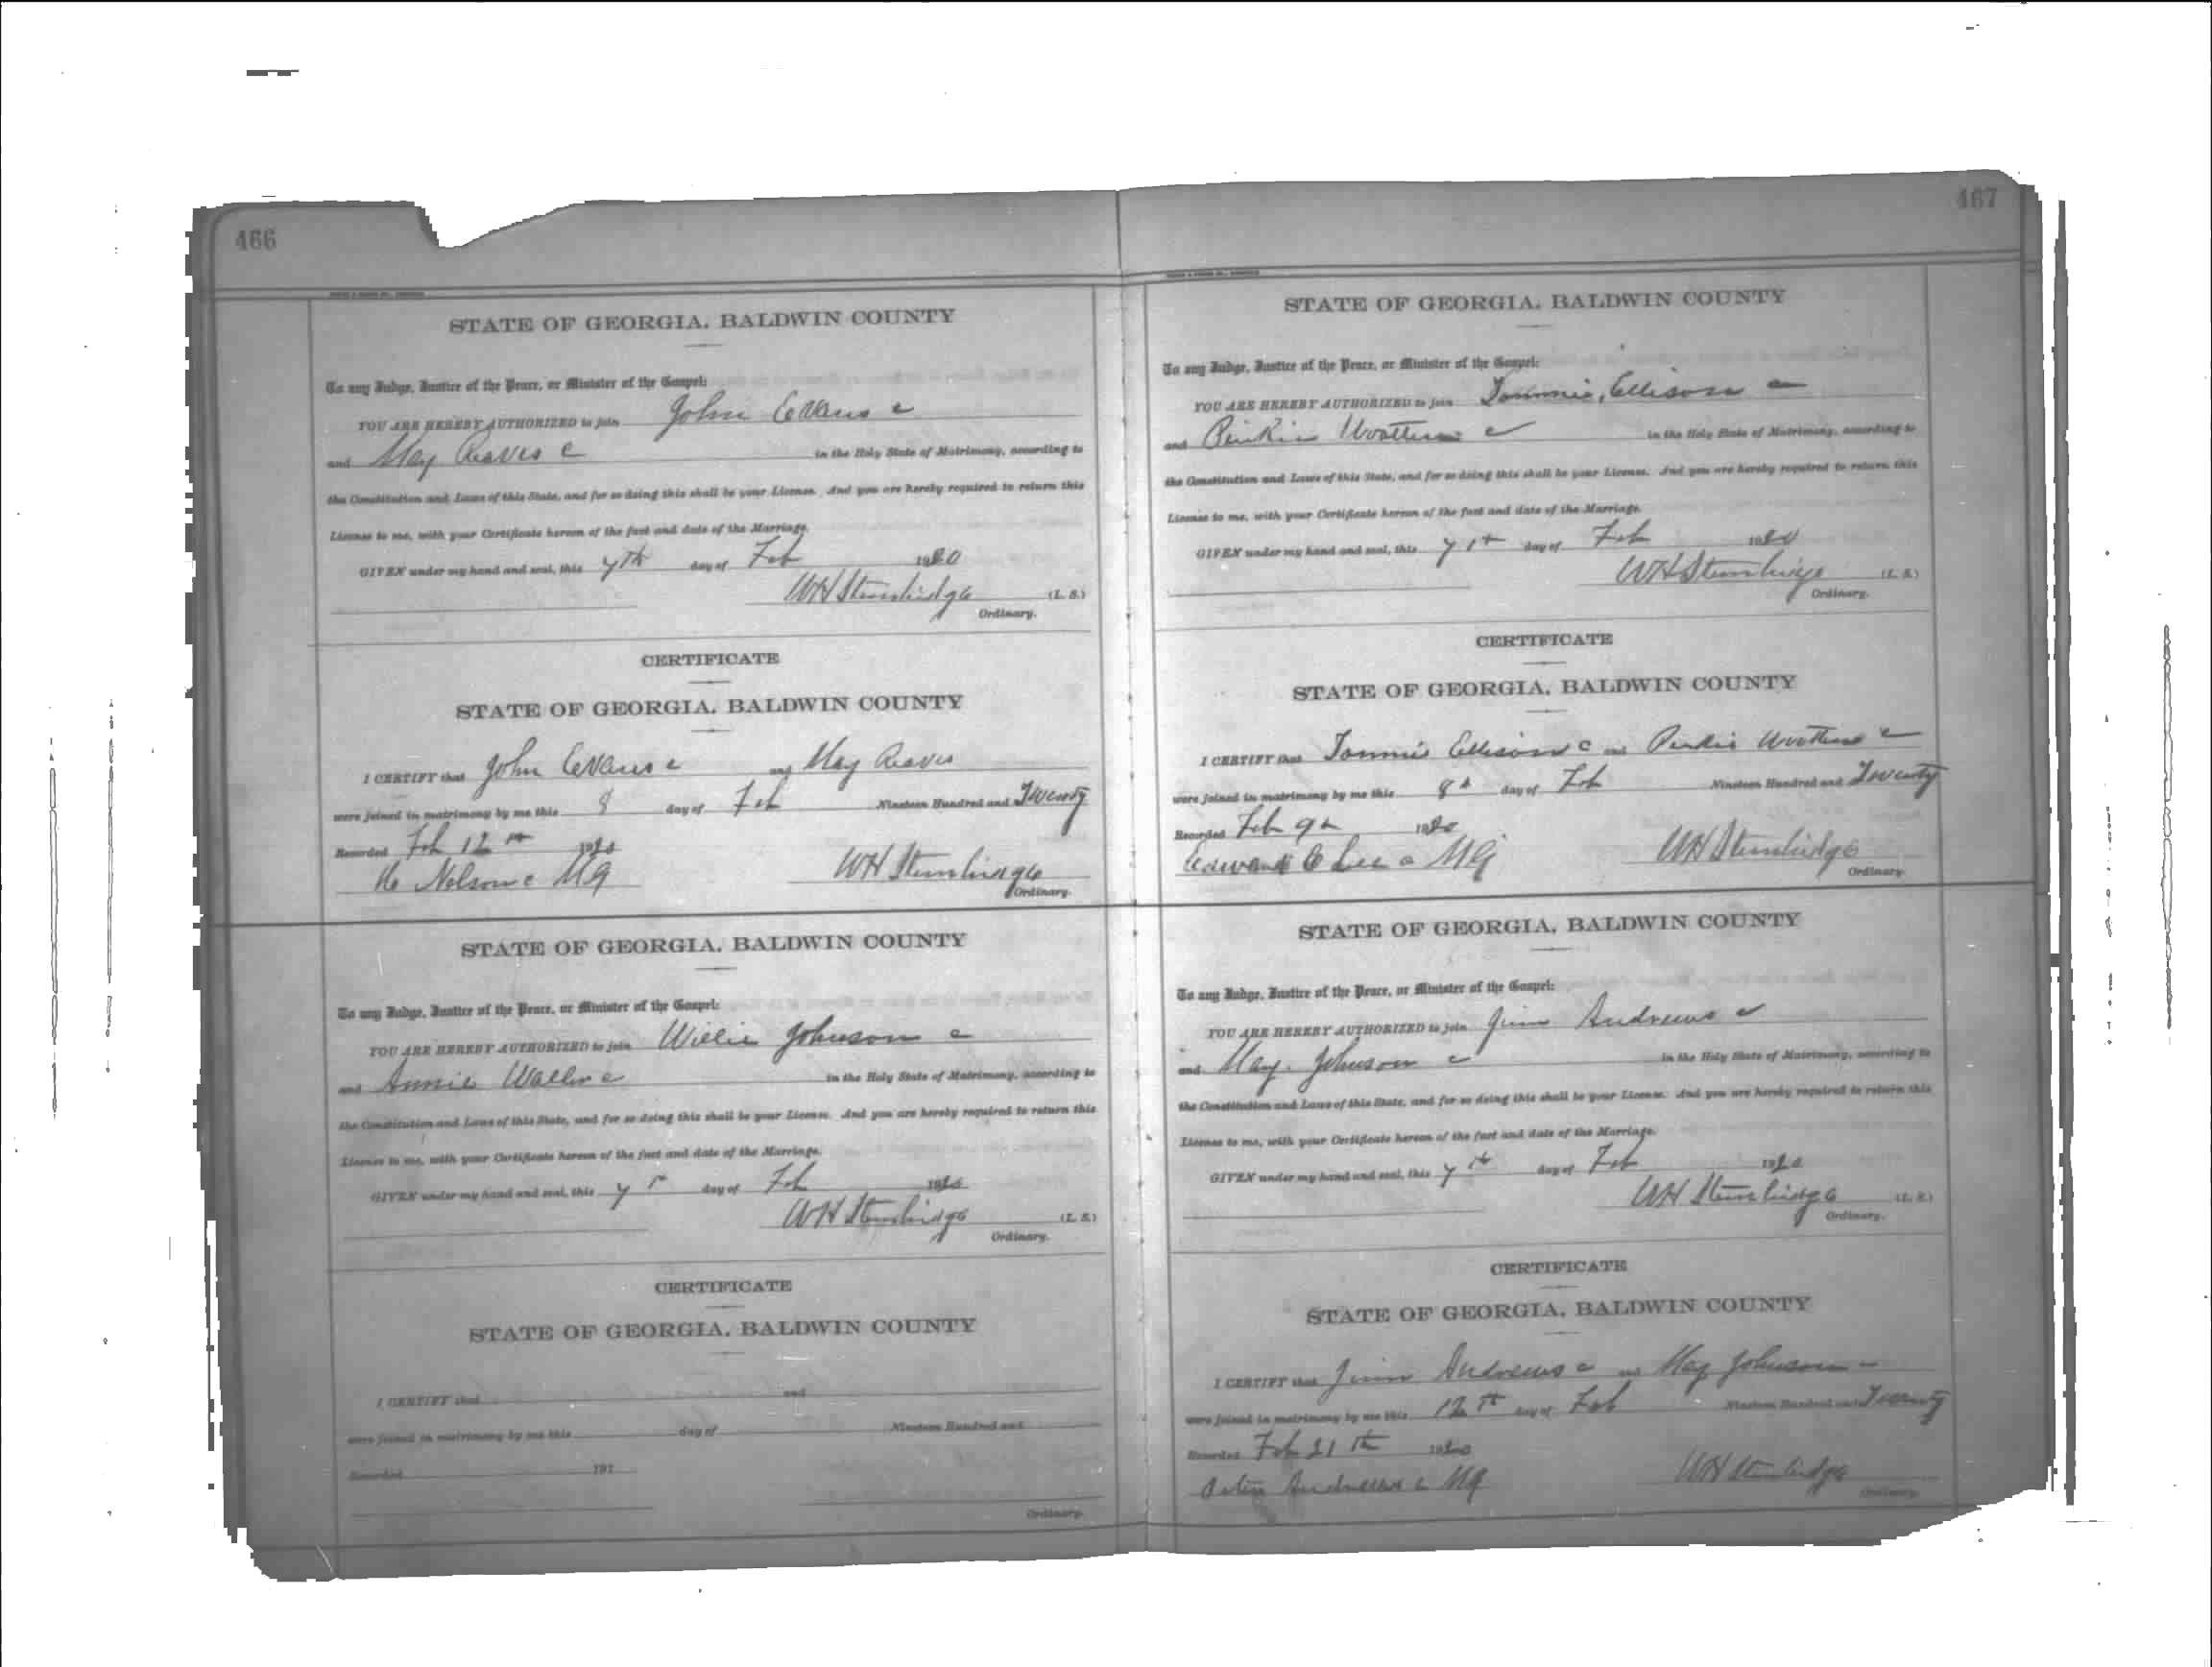 466
STATE OF GEORGIA, BALDWIN COUNTY
To any Judge, Justice of the Peace, or Minister of the Gospel:
YOU ARE HEREBY AUTHORIZED to join John Evans c
and May Reaves c in the Holy State of Matrimony, according to
the Constitution and Laws of this State, and for so doing this shall be your License. And you are hereby required to return this
License to me, with your Certificate hereon of the fact and date of the Marriage.
GIVEN under my hand and seal, this 7th day of Feb 1920
WH Stembridge (L. S.)
Ordinary.
CERTIFICATE
STATE OF GEORGIA, BALDWIN COUNTY
I CERTIFY that John Evans c and May Reaves
were joined in matrimony by me this 8 day of Feb Nineteen Hundred and Twenty
Recorded Feb 12th 1920
Nelson c MG WH Stembridge
Ordinary.
STATE OF GEORGIA, BALDWIN COUNTY
To any Judge, Justice of the Peace, or Minister of the Gospel:
YOU ARE HEREBY AUTHORIZED to join Willie Johnson c
and Annie Waller c in the Holy State of Matrimony, according to
the Constitution and Laws of this State, and for so doing this shall be your License. And you are hereby required to return this
License to me, with your Certificate hereon of the fact and date of the Marriage.
GIVEN under my hand and seal, this 7th day of Feb 1920
WH Stembridge (L. S.)
Ordinary.
CERTIFICATE
STATE OF GEORGIA, BALDWIN COUNTY
I CERTIFY that and
were joined in matrimony by me this day of Nineteen Hundred and
Recorded 191
Ordinary.
467
STATE OF GEORGIA, BALDWIN COUNTY
To any Judge, Justice of the Peace, or Minister of the Gospel:
YOU ARE HEREBY AUTHORIZED to join Tommie Ellison c
and Pinkie Wootten c in the Holy State of Matrimony, according to
the Constitution and Laws of this State, and for so doing this shall be your License. And you are hereby required to return this
License to me, with your Certificate hereon of the fact and date of the Marriage.
GIVEN under my hand and seal, this 7th day of Feb 1920
WH Stembridge (L. S.)
Ordinary.
CERTIFICATE
STATE OF GEORGIA, BALDWIN COUNTY
I CERTIFY that Tommie Ellison c and Pinkie Wootten c
were joined in matrimony by me this 8th day of Feb Nineteen Hundred and Twenty
Recorded Feb 9th 1920
Edward C Lee c MG WH Stembridge
Ordinary.
STATE OF GEORGIA, BALDWIN COUNTY
To any Judge, Justice of the Peace, or Minister of the Gospel:
YOU ARE HEREBY AUTHORIZED to join Jim Andrews c
and May Johnson c in the Holy State of Matrimony, according to
the Constitution and Laws of this State, and for so doing this shall be your License. And you are hereby required to return this
License to me, with your Certificate hereon of the fact and date of the Marriage.
GIVEN under my hand and seal, this 7th day of Feb 1920
WH Stembridge (L. S.)
Ordinary.
CERTIFICATE
STATE OF GEORGIA, BALDWIN COUNTY
I CERTIFY that Jim Andrews c and May Johnson c
were joined in matrimony by me this 12th day of Feb Nineteen Hundred and Twenty
Recorded Feb 21th 1920
Andrews c MG WH Stembridge
Ordinary.